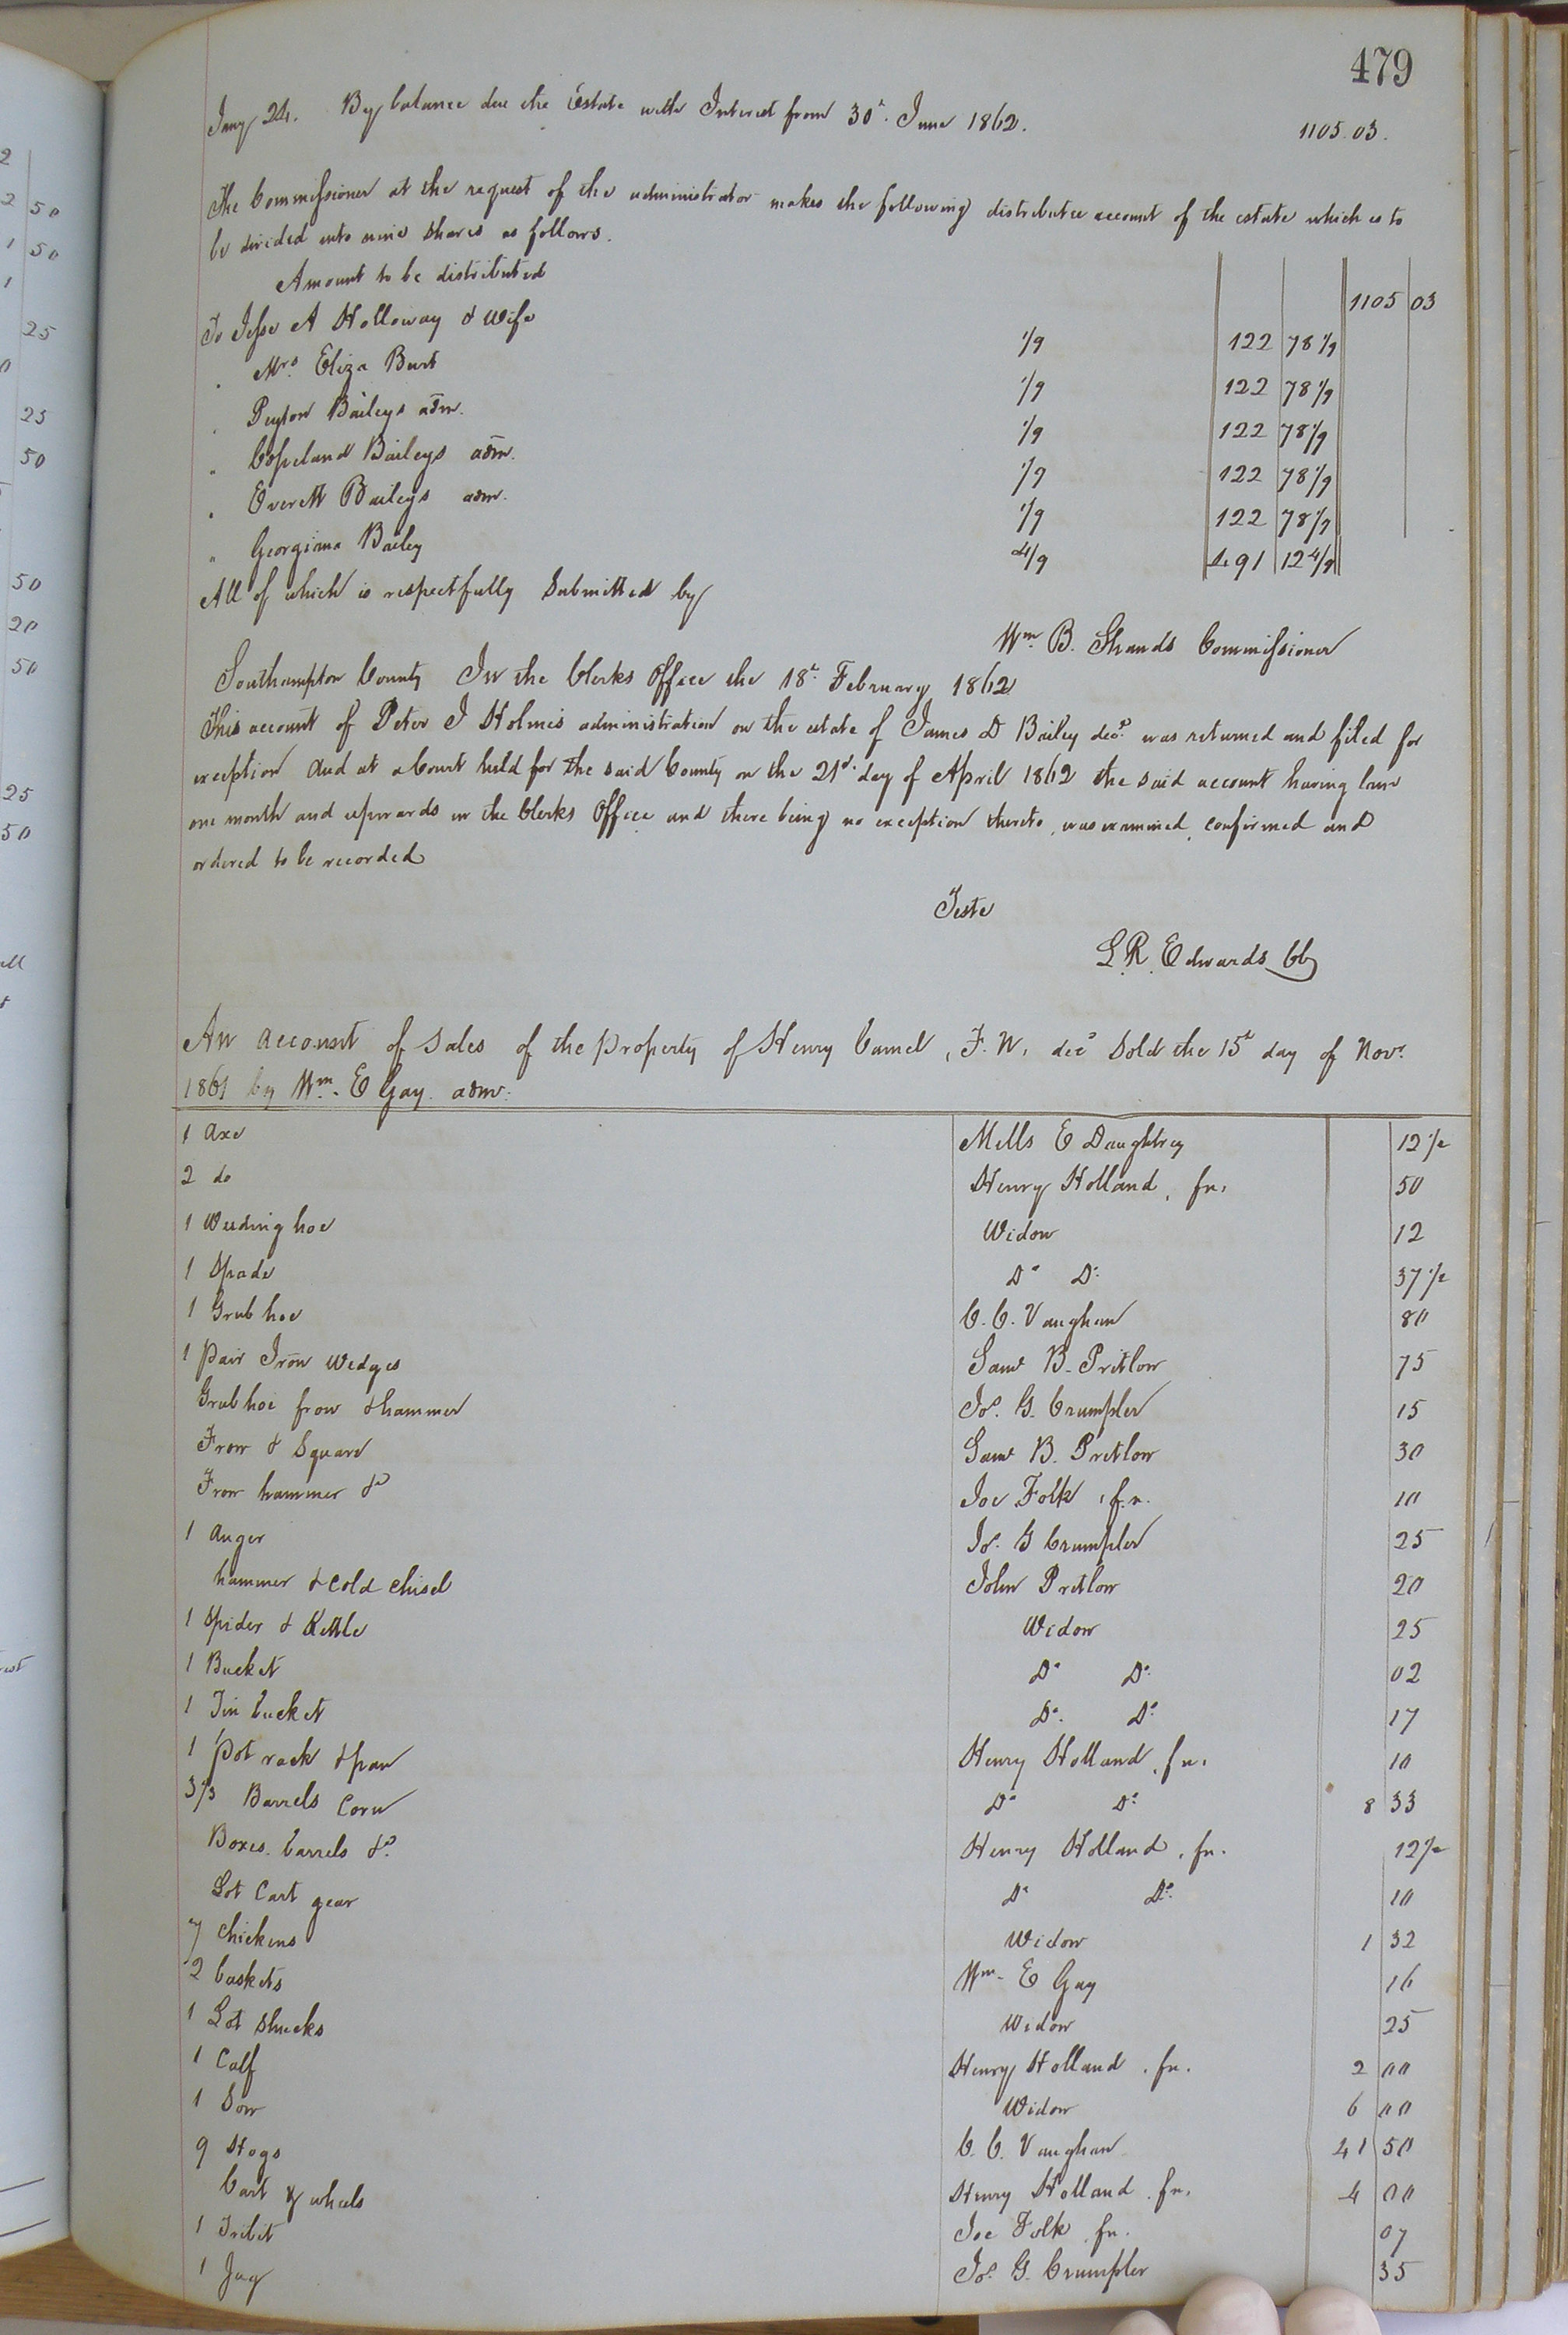 479
Jany 24. By balance due the Estate with Interest from 30th. June 1862. 1105.03.
The Commissioner at the request of the administrator makes the following distributee account of the estate which is to
be divided into nine shares as follows.
Amount to be distributed 1105 03
To Jesse A Holloway & Wife 1/9 122 78 1/9
" Mrs. Eliza Burt 1/9 122 78 1/9
" Peyton Baileys adm. 1/9 122 78 1/9
" Copeland Baileys adm. 1/9 122 78 1/9
" Everett Baileys adm. 1/9 122 78 1/9
" Georgiana Bailey 4/9 491 12 4/9
All of which is respectfully Submitted by
Wm. B. Shands Commissioner
Southampton County In the Clerks Office the 18th. February 1862
This account of Peter J Holmes administration on the estate of James D Bailey decd. was returned and filed for
exception And at a Court held for the said County on the 21st. day of April 1862 the said account having lain
one month and upwards in the Clerks Office and there being no exception thereto, was examined, confirmed and
ordered to be recorded
Teste
L. R. Edwards CC
An account of Sales of the property of Henry Camel, F. N. decd Sold the 15th day of Novr.
1861 by Wm. E Gay adm.
1 Axe Mills E Daughtrey 12 1/2
2 do Henry Holland, fn. 50
1 Weeding hoe Widow 12
1 Spade Do Do. 37 1/2
1 Grub hoe C. C. Vaughan 80
1 Pair Iron Wedges Saml B. Pretlow 75
Grub hoe frow & hammer Jos. G. Crumpler 15
Frow & Square Saml B. Pretlow 30
Frow hammer &c Joe Folk, f.n. 10
1 Auger Jos. G Crumpler 25
hammer & Cold chisel John Pretlow 20
1 Spider & Kettle Widow 25
1 Bucket Do. Do. 02
1 Tin bucket Do. Do. 17
1 Pot rack & pan Henry Holland, fn. 10
3 1/3 Barrels Corn Do Do. 8 33
Boxes. barrels &c. Henry Holland, fn. 12 1/2
Lot Cart gear Do Do. 10
7 Chickens Widow 1 32
2 baskets Wm. E Gay 16
1 Lot Shucks Widow 25
1 Calf Henry Holland, fn. 2 00
1 Sow Widow 6 00
9 Hogs C. C. Vaughan 41 50
Cart & wheels Henry Holland, fn. 4 00
1 Tribit Joe Folk, fn. 07
1 Jug Jos. G. Crumpler 35